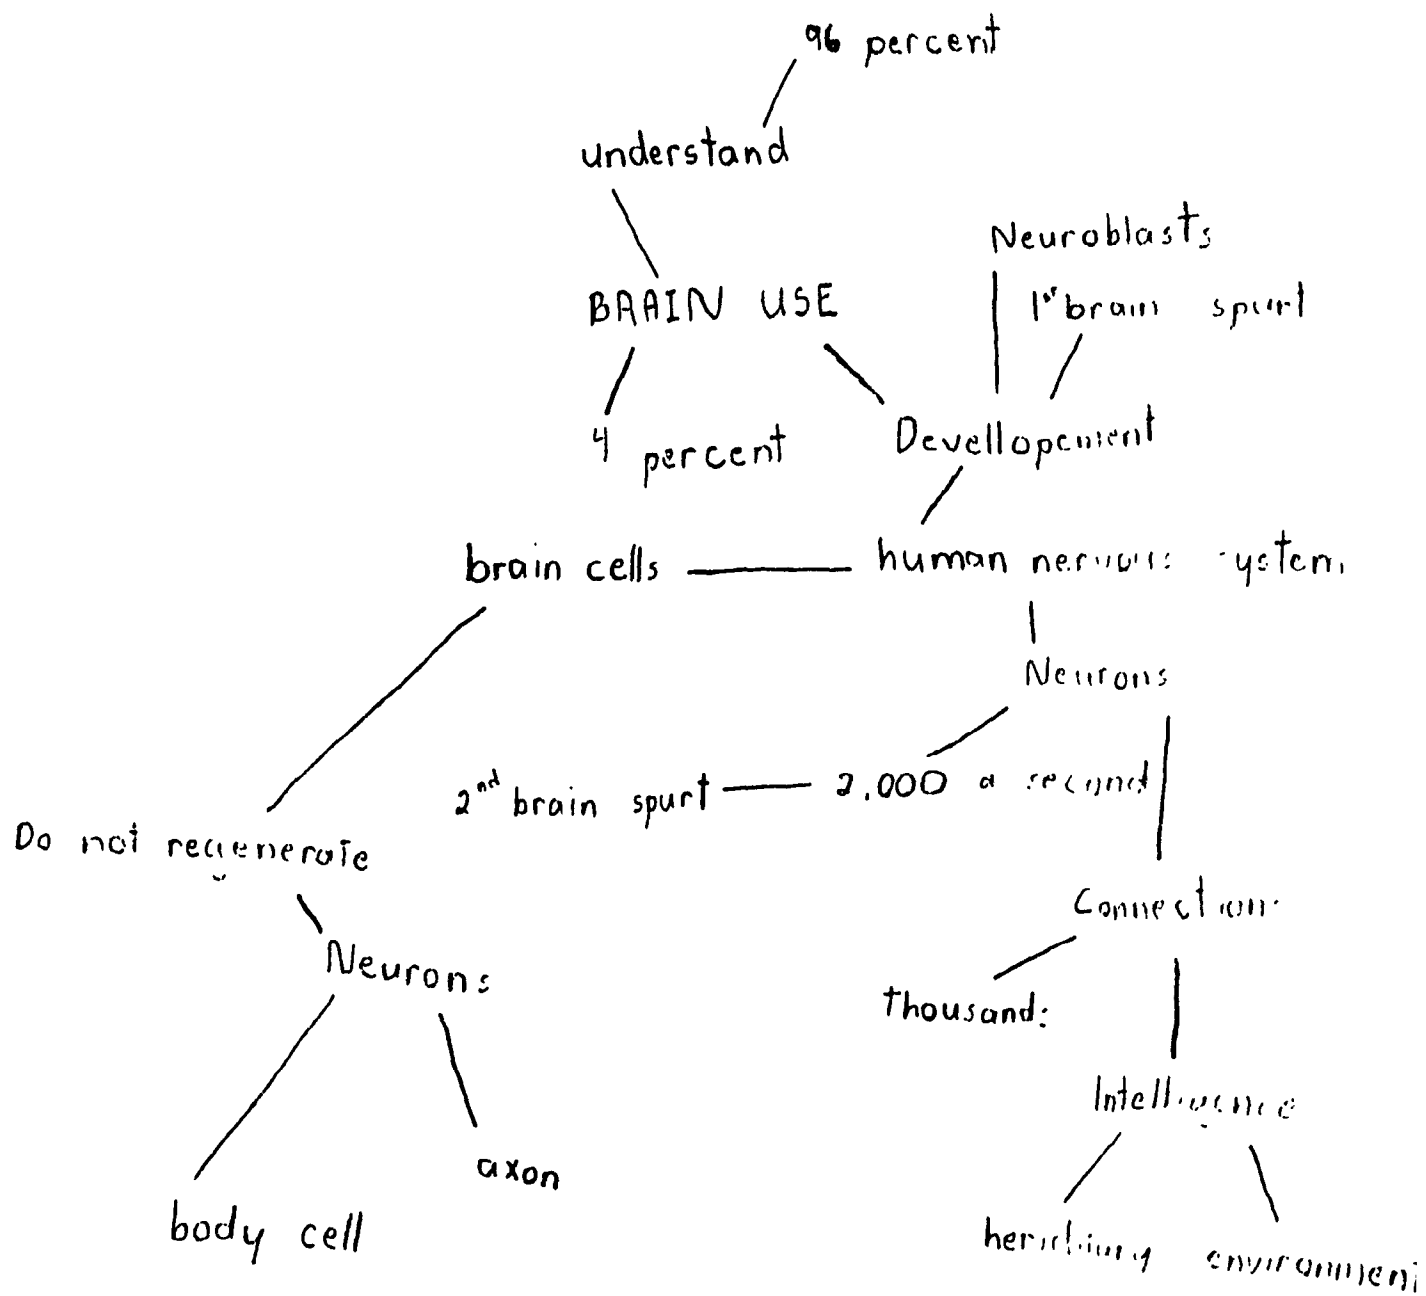 96 percent
understand
Neuroblasts
BRAIN USE
1st brain spurt
4 percent
Devellopement
brain cells
human nervous system
Neurons
2nd brain spurt
2.000 a second
Do not regenerate
Connections
Neurons
thousands
Intelligence
axon
body cell
environment